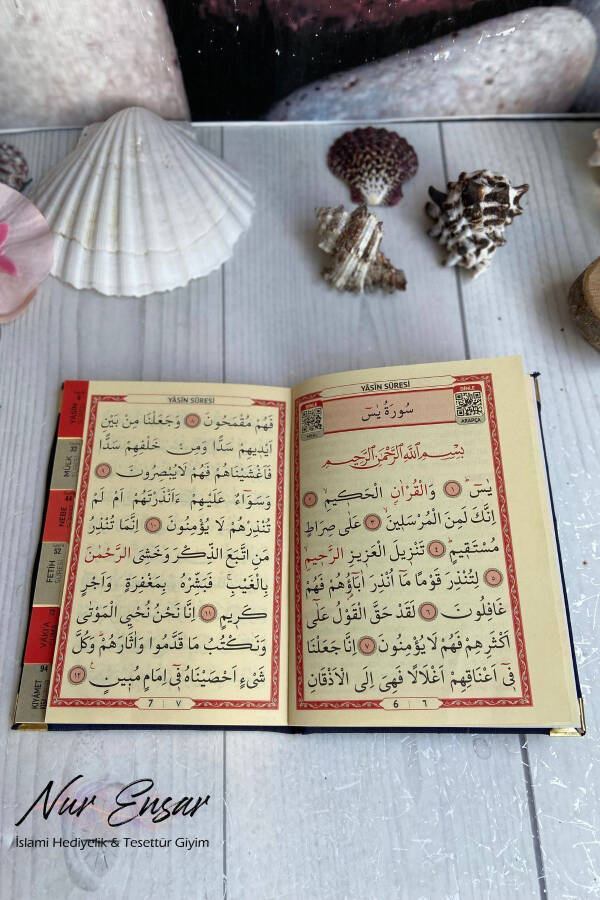 YÂSÎN SÛRESİ
DİNLE
سُورَةُ يٰسٓ
ARAPÇA
بِسْمِ اللّٰهِ الرَّحْمٰنِ الرَّحِيمِ
يٰسٓ ﴿١﴾ وَالْقُرْاٰنِ الْحَكِيمِ ﴿٢﴾
اِنَّكَ لَمِنَ الْمُرْسَلِينَ ﴿٣﴾ عَلٰى صِرَاطٍ
مُسْتَقِيمٍ ﴿٤﴾ تَنْزِيلَ الْعَزِيزِ الرَّحِيمِ
﴿٥﴾ لِتُنْذِرَ قَوْمًا مَٓا اُنْذِرَ اٰبَٓاؤُ۬هُمْ فَهُمْ
غَافِلُونَ ﴿٦﴾ لَقَدْ حَقَّ الْقَوْلُ عَلٰٓى
اَكْثَرِهِمْ فَهُمْ لَا يُؤْمِنُونَ ﴿٧﴾ اِنَّا جَعَلْنَا
فِٓي اَعْنَاقِهِمْ اَغْلَالًا فَهِيَ اِلَى الْاَذْقَانِ
6 ٦
YÂSÎN SÛRESİ
فَهُمْ مُقْمَحُونَ ﴿٨﴾ وَجَعَلْنَا مِنْ بَيْنِ
اَيْدِيهِمْ سَدًّا وَمِنْ خَلْفِهِمْ سَدًّا
فَاَغْشَيْنَاهُمْ فَهُمْ لَا يُبْصِرُونَ ﴿٩﴾
وَسَوَٓاءٌ عَلَيْهِمْ ءَاَنْذَرْتَهُمْ اَمْ لَمْ
تُنْذِرْهُمْ لَا يُؤْمِنُونَ ﴿١٠﴾ اِنَّمَا تُنْذِرُ
مَنِ اتَّبَعَ الذِّكْرَ وَخَشِيَ الرَّحْمٰنَ
بِالْغَيْبِۚ فَبَشِّرْهُ بِمَغْفِرَةٍ وَاَجْرٍ
كَرِيمٍ ﴿١١﴾ اِنَّا نَحْنُ نُحْيِ الْمَوْتٰى
وَنَكْتُبُ مَا قَدَّمُوا وَاٰثَارَهُمْۜ وَكُلَّ
شَيْءٍ اَحْصَيْنَاهُ فِٓي اِمَامٍ مُبِينٍ ﴿١٢﴾
7 ٧
YÂSÎN
MÜLK
NEBE
FETİH
52
VÂKIA
KIYÂMET
94
Nur Ensar
İslami Hediyelik & Tesettür Giyim